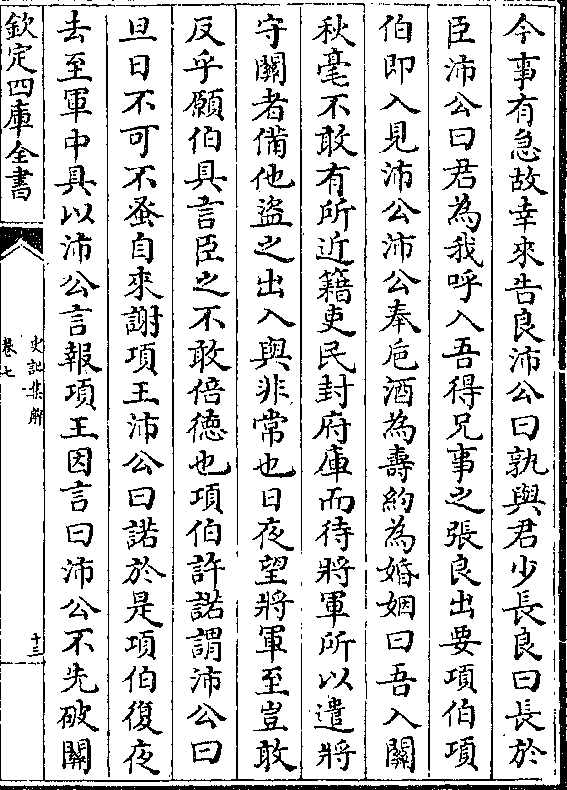 今事有急故幸來告良沛公曰孰與君少長良曰長於
臣沛公曰君為我呼入吾得兄事之張良出要項伯項
伯即入見沛公沛公奉巵酒為壽約為婚姻曰吾入關
秋毫不敢有所近籍吏民封府庫而待將軍所以遣將
守關者備他盜之出入與非常也日夜望將軍至豈敢
反乎願伯具言臣之不敢倍德也項伯許諾謂沛公曰
旦日不可不蚤自來謝項王沛公曰諾於是項伯復夜
去至軍中具以沛公言報項王因言曰沛公不先破關
欽定四庫全書
史記集解
卷七
十三